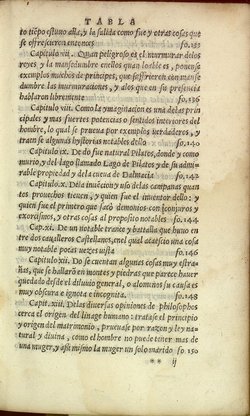 TABLA
to tiẽpo estuuo alla, y la salida como fue y otras cosas que
se offrescieron entonces fo.132
Capitulo.vii. Quan peligroso es el murmurar delos
reyes, y la mansedumbre enellos quan loable es, ponense
exemplos muchos de principes, que suffrieron con manse
dumbre las murmuraciones, y alos que en su presencia
hablaron libremente
Capitulo.viii. Como la ymaginacion es una delas prin
cipales y mas fuertes potencias o sentidos interiores del
hombre, lo qual se prueua por exemplos verdaderos, y
trata se algunas hystorias notables dello fo.140
Capitulo.ix. De do fue natural Pilatos, donde y como
murio, y del lago llamado Lago de Pilatos y de su admi
rable propiedad y dela cueua de Dalmacia fo.142
Capitulo.x. Dela inuẽcion y uso delas campanas quan
tos prouechos tienen, y quien fue el inuentor dello: y
quien fue el primero que sacò demonios con conjuros y
exorcismos, y otras cosas al proposito notables fo.144
Capitulo.xi. De un notable trance y batalla que huuo en
tre dos caualleros Castellanos, enel qual acaescio una cosa
muy notable pocas uezes uista fo.146
Capitulo.xii. Do se cuentan algunas cosas muy estra-
ñas, que se hallarõ en montes y piedras que parece huuer
quedado desde el diluuio general, o alomenos su causa es
muy obscura e ignota e incognita. fo.148
Capi.xiii. Delas diuersas opiniones de philosophos
cerca el origen del linage humano: tratase el principio
y origen del matrimonio, prueuase por razon y ley na-
tural y diuina, como el hombre no puede tener mas de
una muger, y assi mismo la muger un solo marido fo.150
** ij